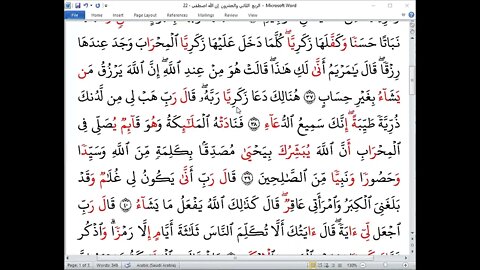 الربع الثاني والعشرون إن الله اصطفى - 22 - Microsoft Word
File Home Insert Page Layout References Mailings Review View
نَبَاتًا حَسَنٗا وَكَفَّلَهَا زَكَرِيَّاۖ كُلَّمَا دَخَلَ عَلَيۡهَا زَكَرِيَّا ٱلۡمِحۡرَابَ وَجَدَ عِندَهَا
رِزۡقٗاۖ قَالَ يَٰمَرۡيَمُ أَنَّىٰ لَكِ هَٰذَاۖ قَالَتۡ هُوَ مِنۡ عِندِ ٱللَّهِۖ إِنَّ ٱللَّهَ يَرۡزُقُ مَن
يَشَآءُ بِغَيۡرِ حِسَابٍ ٣٧ هُنَالِكَ دَعَا زَكَرِيَّا رَبَّهُۥۖ قَالَ رَبِّ هَبۡ لِي مِن لَّدُنكَ
ذُرِّيَّةٗ طَيِّبَةًۖ إِنَّكَ سَمِيعُ ٱلدُّعَآءِ ٣٨ فَنَادَتۡهُ ٱلۡمَلَٰٓئِكَةُ وَهُوَ قَآئِمٞ يُصَلِّي فِي
ٱلۡمِحۡرَابِ أَنَّ ٱللَّهَ يُبَشِّرُكَ بِيَحۡيَىٰ مُصَدِّقَۢا بِكَلِمَةٖ مِّنَ ٱللَّهِ وَسَيِّدٗا
وَحَصُورٗا وَنَبِيّٗا مِّنَ ٱلصَّٰلِحِينَ ٣٩ قَالَ رَبِّ أَنَّىٰ يَكُونُ لِي غُلَٰمٞ وَقَدۡ
بَلَغَنِيَ ٱلۡكِبَرُ وَٱمۡرَأَتِي عَاقِرٞۖ قَالَ كَذَٰلِكَ ٱللَّهُ يَفۡعَلُ مَا يَشَآءُ ٤٠ قَالَ رَبِّ
ٱجۡعَل لِّي ءَايَةٗۖ قَالَ ءَايَتُكَ أَلَّا تُكَلِّمَ ٱلنَّاسَ ثَلَٰثَةَ أَيَّامٍ إِلَّا رَمۡزٗاۗ وَٱذۡكُر
Page: 1 of 3 Words: 349 Arabic (Saudi Arabia) 130%